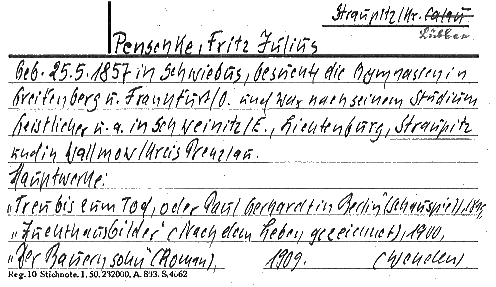 Straupitz/Kr. Calau
Lübben
Penschke, Fritz Julius
Geb. 25.5.1857 in Schwiebus, besuchte die Gymnasien in
Greifenberg u. Frankfurt/O. und war nach seinem Studium
Geistlicher u. a. in Schweinitz/E., Lichtenburg, Straupitz
und in Wallmow/Kreis Prenzlau.
Hauptwerke:
„Treu bis zum Tod, oder Paul Gerhardt in Berlin" (Schauspiel),
„Zuchthausbilder" (Nach dem Leben gezeichnet), 1900,
„Der Bauernsohn" (Roman), 1909. (Wenden)
Reg. 10 Stichnote. I, 50, 232000, A. 893. S. 4662